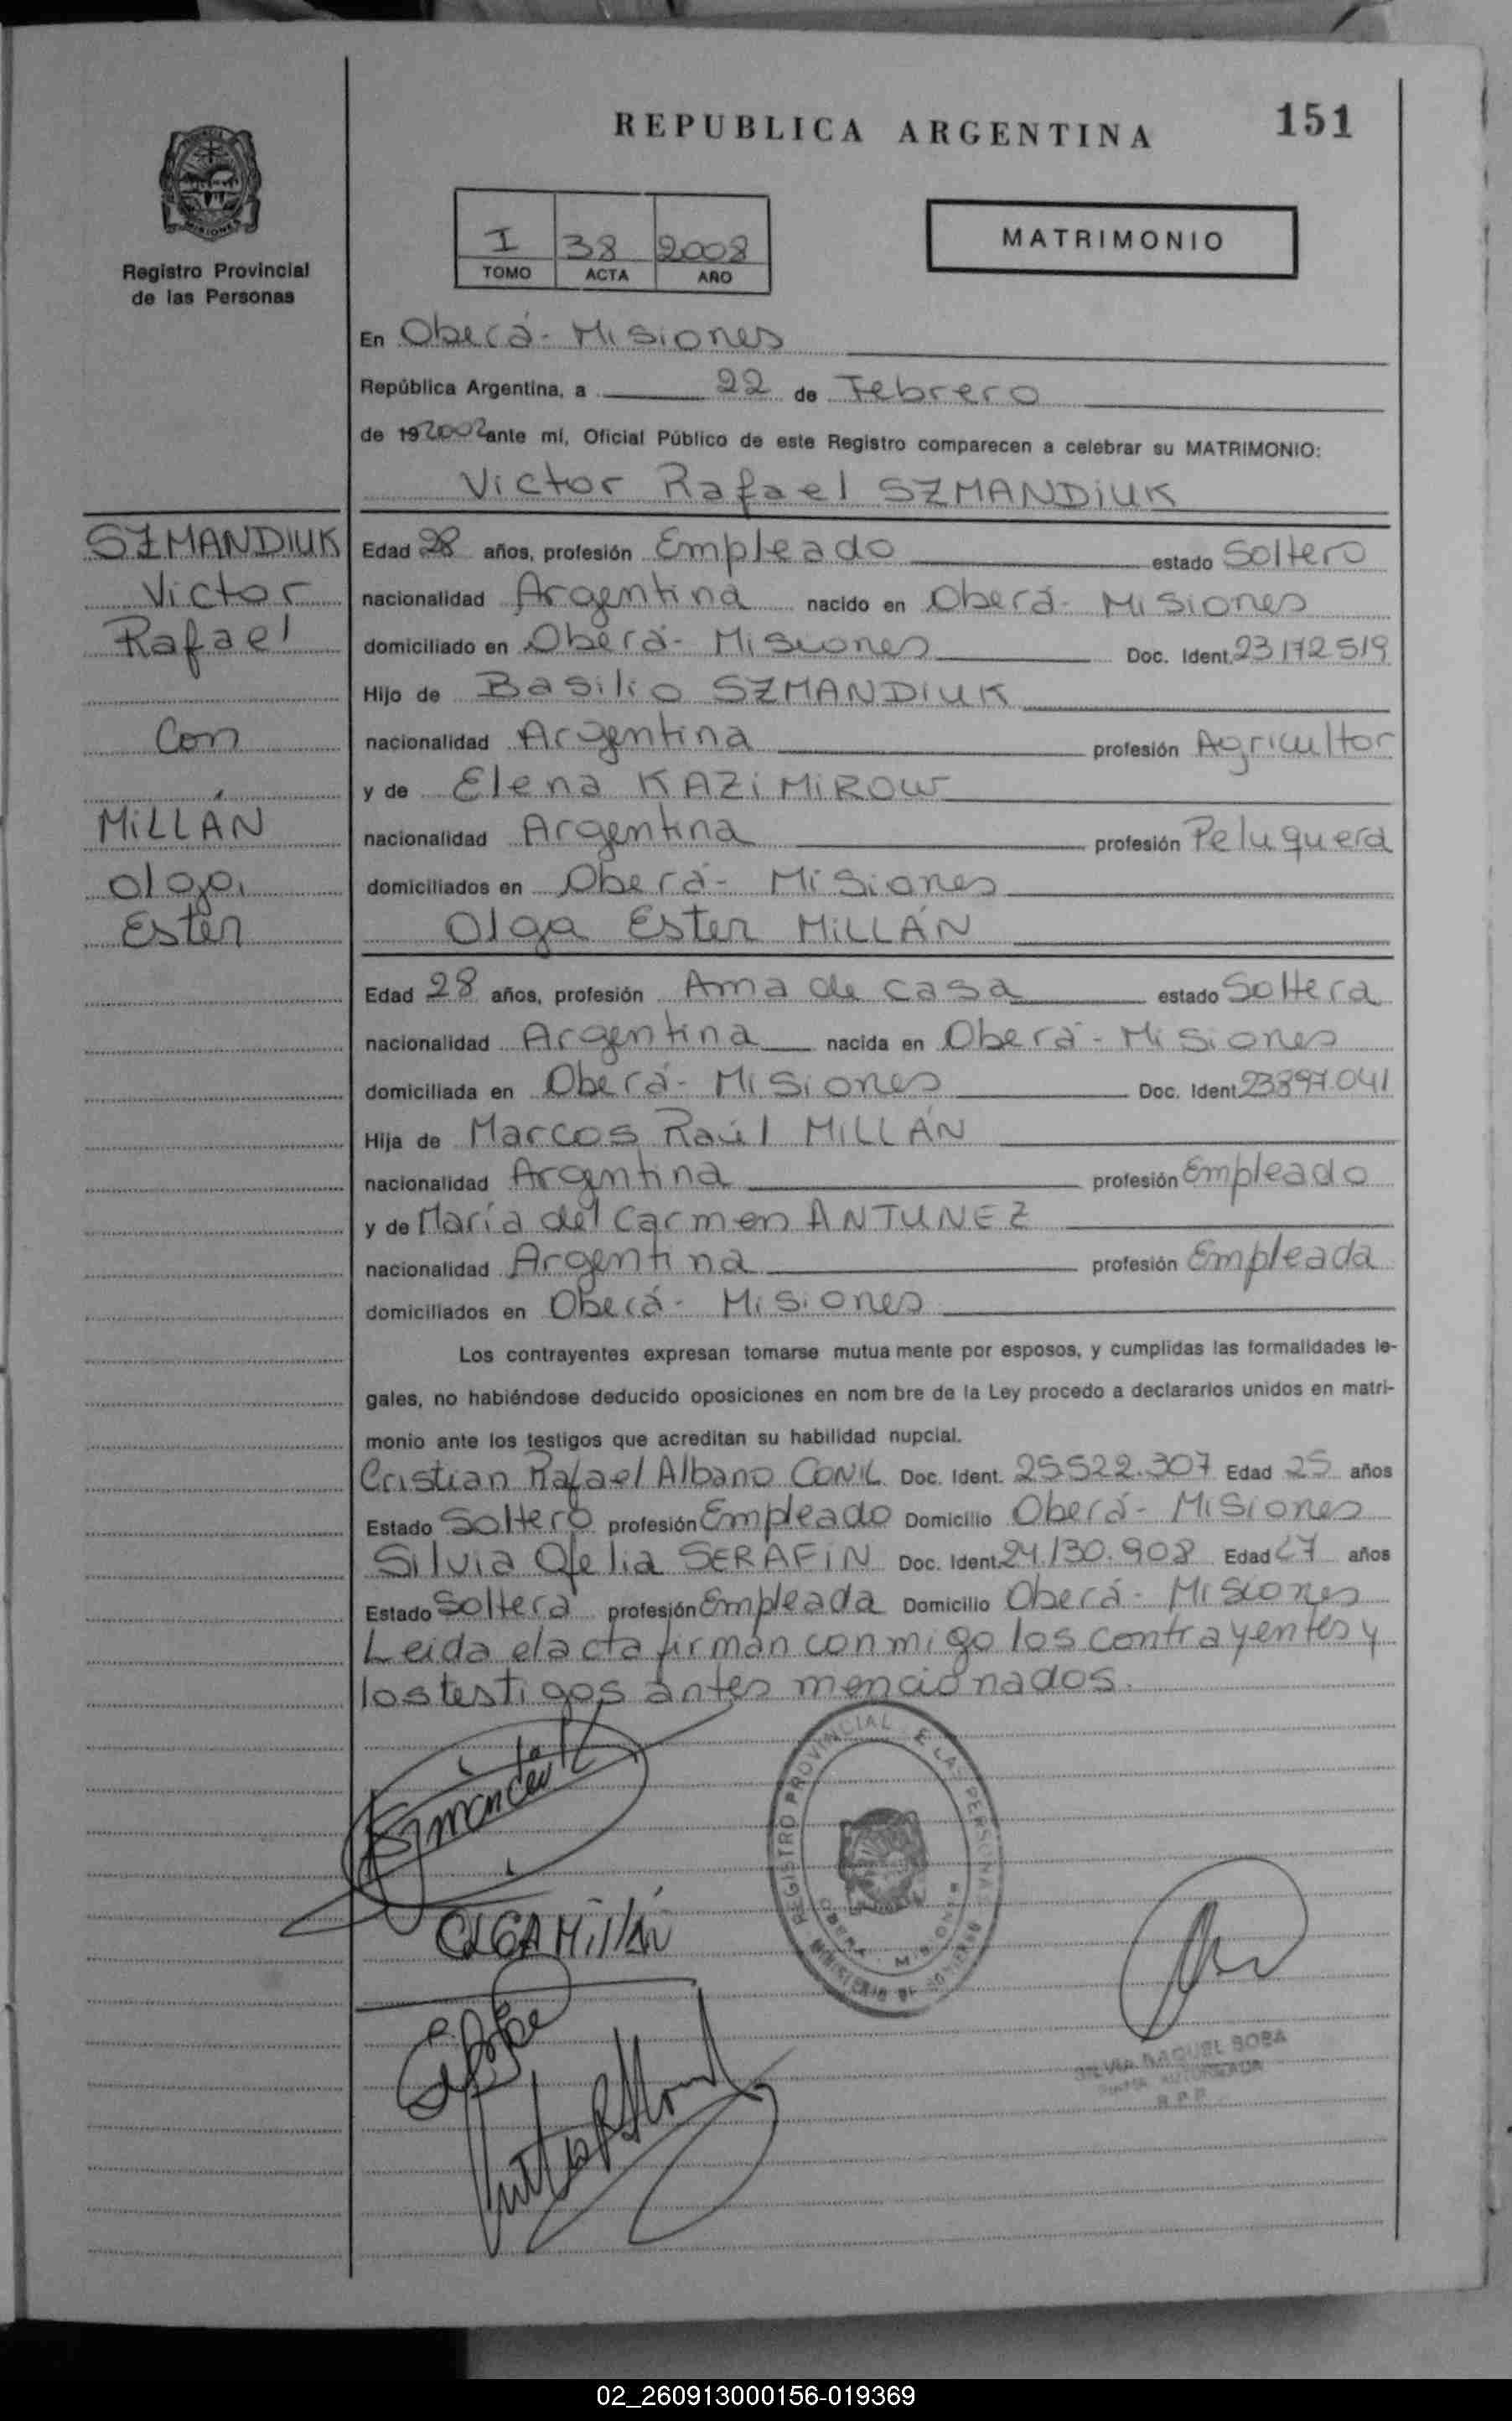 REPUBLICA ARGENTINA
151
I 38 2008
TOMO ACTA AÑO
MATRIMONIO
Registro Provincial
de las Personas
En Oberá - Misiones
República Argentina, a 22 de Febrero
de 19 2002 ante mí, Oficial Público de este Registro comparecen a celebrar su MATRIMONIO:
Victor Rafael SZMANDIUK
SZMANDIUK
Victor
Rafael
Con
MILLÁN
Olga
Ester
Edad 28 años, profesión Empleado estado Soltero
nacionalidad Argentina nacido en Oberá - Misiones
domiciliado en Oberá - Misiones Doc. Ident. 23.172.519
Hijo de Basilio SZMANDIUK
nacionalidad Argentina profesión Agricultor
y de Elena KAZIMIROW
nacionalidad Argentina profesión Peluquera
domiciliados en Oberá - Misiones
Olga Ester MILLÁN
Edad 28 años, profesión Ama de casa estado Soltera
nacionalidad Argentina nacida en Oberá - Misiones
domiciliada en Oberá - Misiones Doc. Ident. 23.897.041
Hija de Marcos Raúl MILLÁN
nacionalidad Argentina profesión Empleado
y de María del Carmen ANTUNEZ
nacionalidad Argentina profesión Empleada
domiciliados en Oberá - Misiones
Los contrayentes expresan tomarse mutua mente por esposos, y cumplidas las formalidades le-
gales, no habiéndose deducido oposiciones en nom bre de la Ley procedo a declararlos unidos en matri-
monio ante los testigos que acreditan su habilidad nupcial.
Cristian Rafael Albano CONIL Doc. Ident. 25.522.307 Edad 25 años
Estado Soltero profesión Empleado Domicilio Oberá - Misiones
Silvia Ofelia SERAFIN Doc. Ident. 24.130.908 Edad 27 años
Estado Soltera profesión Empleada Domicilio Oberá - Misiones
Leida el acta firman conmigo los contrayentes y
los testigos antes mencionados.
REGISTRO PROVINCIAL DE LAS PERSONAS
OBERA - MISIONES
MINISTERIO DE GOBIERNO
OLGA Millán
SILVIA RAQUEL BOBA
FIRMA AUTORIZADA
R.P.P.
02_260913000156-019369